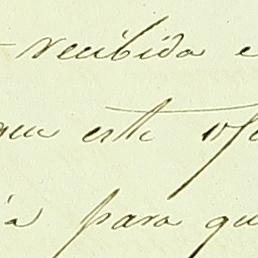 recibida e
que este ofi
ia para qu